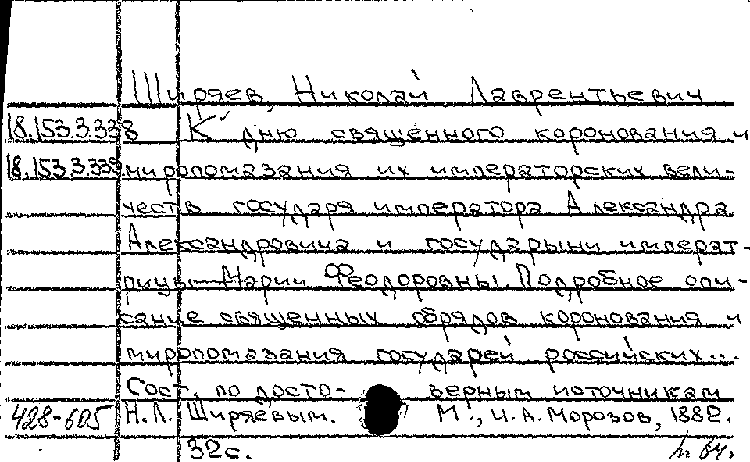 Ширяев, Николай Лаврентьевич
18.153.3.338 К дню священного коронования и
18.153.3.339 миропомазания их императорских вели-
честв государя императора Александра
Александровича и государыни императ-
рицы Марии Феодоровны. Подробное опи-
сание священных обрядов коронования и
миропомазания государей российских...
Сост. по досто- верным источникам
428-605 Н.Л. Ширяевым. М., И.А. Морозов, 1882.
32с.